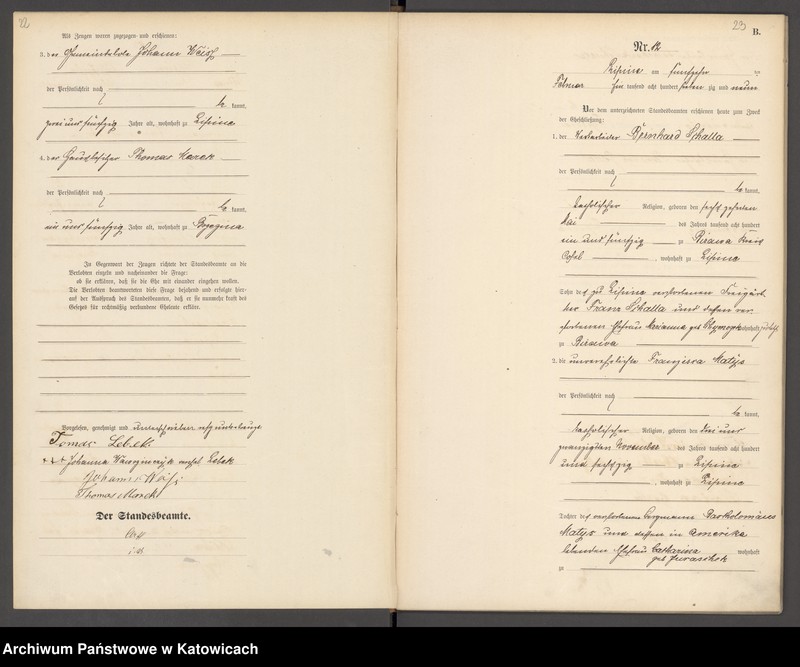 22
Als Zeugen waren zugezogen und erschienen:
3. der Gemeindebote Johann
der Persönlichkeit nach
kannt,
zwei und fünfzig Jahre alt, wohnhaft zu Lipine
4. der Häusler Thomas Marek
der Persönlichkeit nach
kannt,
und fünfzig Jahre alt, wohnhaft zu
In Gegenwart der Zeugen richtete der Standesbeamte an die
Verlobten einzeln und nacheinander die Frage:
ob sie erklären, daß sie die Ehe mit einander eingehen wollen.
Die Verlobten beantworteten diese Frage bejahend und erfolgte hier-
auf der Ausspruch des Standesbeamten, daß er sie nunmehr kraft des
Gesetzes für rechtmäßig verbundene Eheleute erkläre.
Vorgelesen, genehmigt und
Tomas Lebek
+++ Johanna Lebek
Johann
Thomas Marek
Der Standesbeamte.
23
B.
Nr. 12
Lipine am fünfzehn ten
Februar tausend acht hundert sieben zig und neun
Vor dem unterzeichneten Standesbeamten erschienen heute zum Zweck
der Eheschließung:
1. der Bernhard Schalla
der Persönlichkeit nach
kannt,
katholischer Religion, geboren den sechszehnten
Mai des Jahres tausend acht hundert
ein und fünfzig zu Birawa Kreis
Cosel , wohnhaft zu Lipine
Sohn des zu Lipine verstorbenen
Franz Schalla und dessen ver
storbenen Ehefrau Marianna geb. wohnhaft
zu Birawa
2. die unverehelichte Franziska Matys
der Persönlichkeit nach
kannt,
katholischer Religion, geboren den drei und
zwanzigsten November des Jahres tausend acht hundert
und sechszig zu Lipine
, wohnhaft zu Lipine
Tochter des verstorbenen Bergmann Bartholomäus
Matys und dessen in Amerika
lebenden Ehefrau Catharina wohnhaft
geb.
zu
Archiwum Państwowe w Katowicach